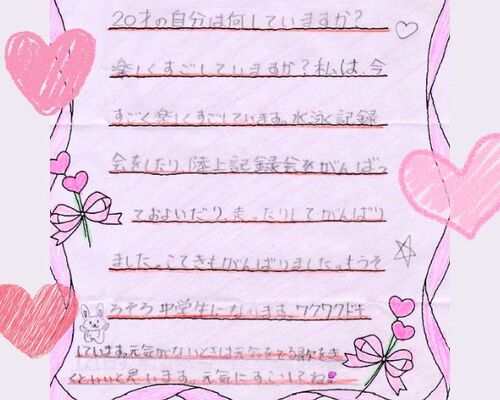 20才の自分は何していますか?
楽しくすごしていますか?私は、今
すごく楽しくすごしています。水泳記録
会をしたり、陸上記録会をがんばっ
ておよいだり、走ったりしてがんばり
ました。こてきもがんばりました。もうそ
ろそろ中学生になります。ワクワクドキ
しています。元気がないときは元気をでる歌をき
くといいと思います。元気にすごしてね!